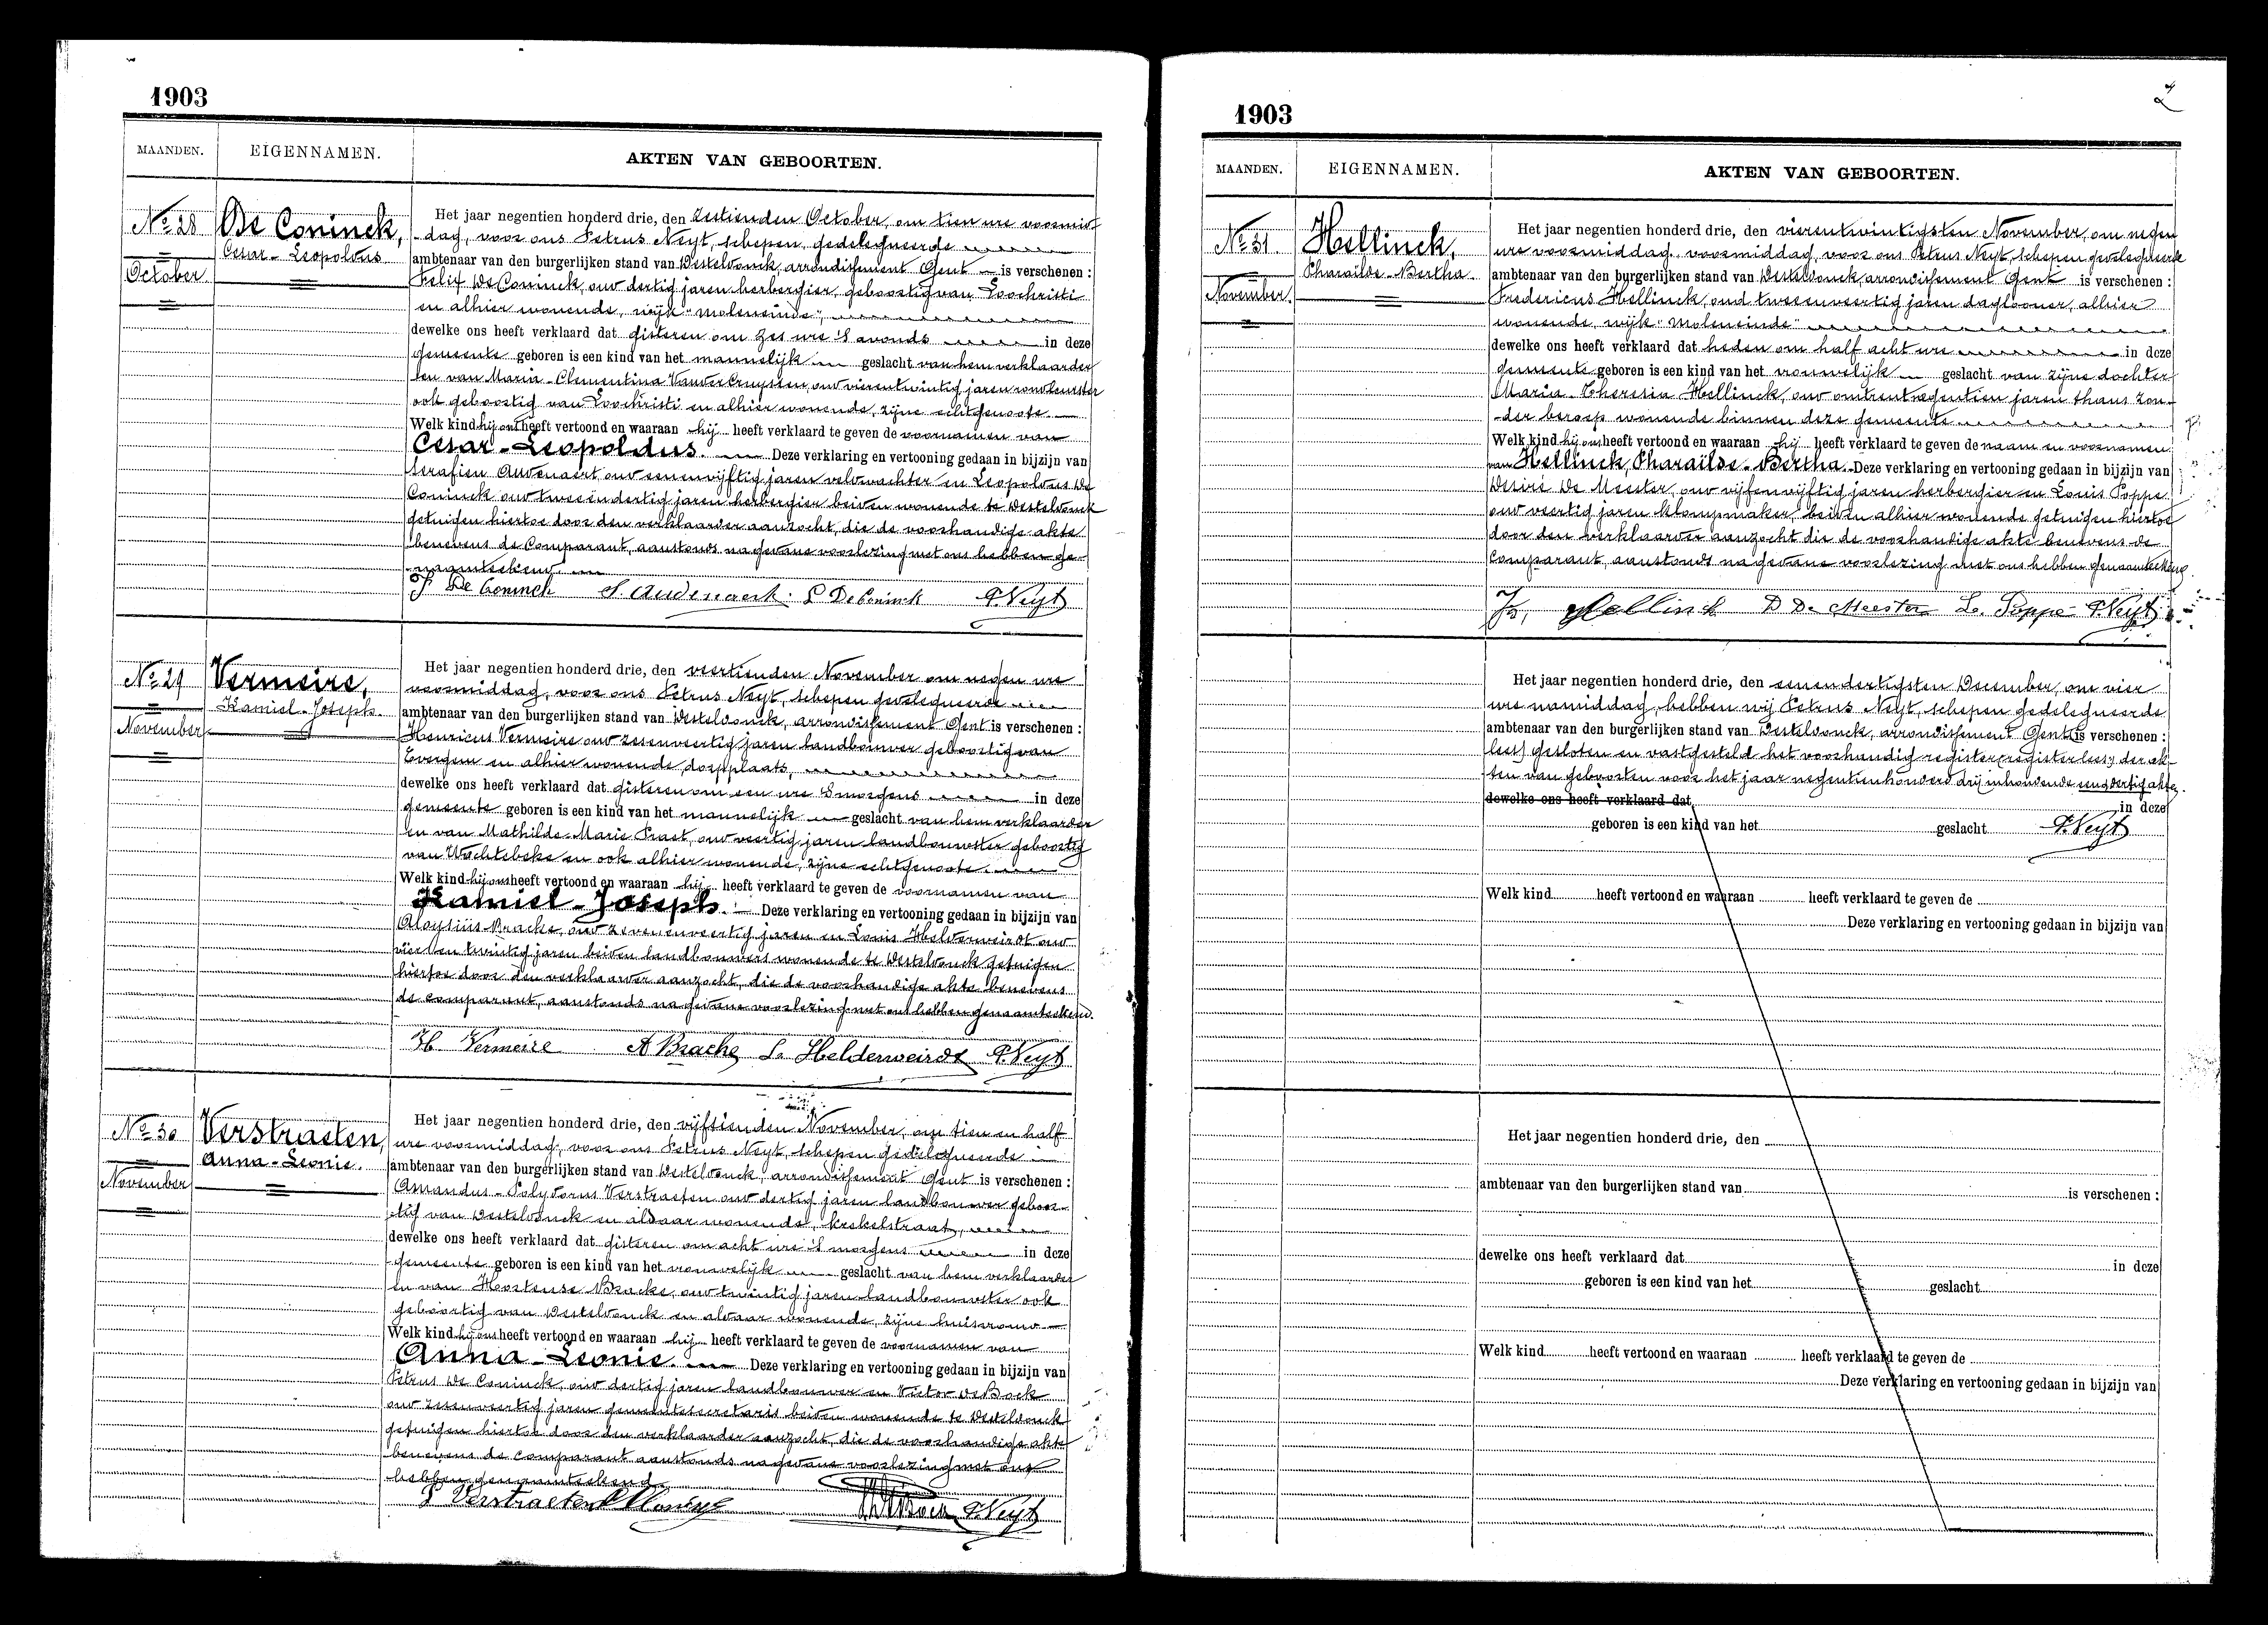 1903
MAANDEN.
EIGENNAMEN.
AKTEN VAN GEBOORTEN.
No 28
October
De Coninck,
Cesar-Leopoldus
Het jaar negentien honderd drie, den zestienden October, om tien ure voormid-
-dag, voor ons Petrus Neyt, schepen, gedelegueerde
ambtenaar van den burgerlijken stand van Desteldonck, arrondissement Gent is verschenen :
Felix De Coninck, oud dertig jaren herbergier, geboortig van Loochristi
en alhier wonende, wijk "moleneinde",
dewelke ons heeft verklaard dat gisteren om zes ure 's avonds in deze
gemeente geboren is een kind van het mannelijk geslacht van hem verklaarder
en van Maria-Clementina Vandercruyssen, oud vierentwintig jaren
ook geboortig van Loochristi en alhier wonende, zijne echtgenoote.
Welk kind hij ons heeft vertoond en waaraan hij heeft verklaard te geven de voornamen van
Cesar-Leopoldus. Deze verklaring en vertooning gedaan in bijzijn van
Serafien Audenaert oud eenenvijftig jaren veldwachter en Leopoldus De
Coninck oud tweeëndertig jaren herbergier beiden wonende te Desteldonck
getuigen hiertoe door den verklaarder aanzocht, die de voorhandige akte
benevens de Comparant, aanstonds na gedane voorlezing met ons hebben ge-
-naamteekend.
F De Coninck S. Audenaert. L De Coninck P. Neyt
No 29
November
Vermeire,
Kamiel-Joseph.
Het jaar negentien honderd drie, den veertienden November om negen ure
voormiddag, voor ons Petrus Neyt, schepen gedelegueerde
ambtenaar van den burgerlijken stand van Desteldonck, arrondissement Gent is verschenen :
Henricus Vermeire oud zesenveertig jaren landbouwer geboortig van
Evergem en alhier wonende, dorpplaats,
dewelke ons heeft verklaard dat gisteren om een ure 's morgens in deze
gemeente geboren is een kind van het mannelijk geslacht van hem verklaarder
en van Mathilde-Marie Praet, oud veertig jaren landbouwster geboortig
van Wachtebeke en ook alhier wonende, zijne echtgenoote.
Welk kind hij ons heeft vertoond en waaraan hij heeft verklaard te geven de voornamen van
Kamiel-Joseph. Deze verklaring en vertooning gedaan in bijzijn van
Aloysiüs Bracke, oud zevenenveertig jaren en Louis Helderweirdt oud
vier en twintig jaren beiden landbouwers wonende te Desteldonck getuigen
hiertoe door den verklaarder aanzocht, die de voorhandige akte benevens
de comparant, aanstonds na gedane voorlezing met ons hebben genaamteekend.
H. Vermeire A Bracke L. Helderweirdt P. Neyt
No 30
November
Verstraeten,
Anna-Leonie.
Het jaar negentien honderd drie, den vijftienden November, om tien en half
ure voormiddag, voor ons Petrus Neyt, schepen gedelegueerde
ambtenaar van den burgerlijken stand van Desteldonck, arrondissement Gent is verschenen :
Amandus-Polydorus Verstraeten oud dertig jaren landbouwer geboor-
-tig van Desteldonck en aldaar wonende, krekelstraat,
dewelke ons heeft verklaard dat gisteren om acht ure 's morgens in deze
gemeente geboren is een kind van het vrouwelijk geslacht van hem verklaarder
en van Hortense Bracke, oud twintig jaren landbouwster ook
geboortig van Desteldonck en aldaar wonende, zijne huisvrouw
Welk kind hij ons heeft vertoond en waaraan hij heeft verklaard te geven de voornamen van
Anna-Leonie. Deze verklaring en vertooning gedaan in bijzijn van
Petrus De Coninck, oud dertig jaren landbouwer en Victor De Bock
oud zesenveertig jaren gemeentesecretaris beiden wonende te Desteldonck
getuigen hiertoe door den verklaarder aanzocht, die de voorhandige akte
benevens de comparant aanstonds na gedane voorlezing met ons
hebben genaamteekend
P Verstraeten P. Neyt
2
1903
MAANDEN.
EIGENNAMEN.
AKTEN VAN GEBOORTEN.
No 31
November.
Hellinck,
Pharaïlde-Bertha.
Het jaar negentien honderd drie, den vierentwintigsten November, om negen
ure voormiddag, voormiddag, voor ons Petrus Neyt, schepen gedelegueerde
ambtenaar van den burgerlijken stand van Desteldonck, arrondissement Gent is verschenen :
Fredericus Hellinck, oud tweeenveertig jaren daglooner, alhier
wonende, wijk "moleneinde"
dewelke ons heeft verklaard dat heden om half acht ure in deze
gemeente geboren is een kind van het vrouwelijk geslacht van zijne dochter
Maria-Theresia Hellinck, oud omtrent negentien jaren thans zon-
-der beroep wonende binnen deze gemeente
Welk kind hij ons heeft vertoond en waaraan hij heeft verklaard te geven de naam en voornamen
van Hellinck, Pharaïlde-Bertha. Deze verklaring en vertooning gedaan in bijzijn van
Desiré De Meester, oud vijfenvijftig jaren herbergier en Louis Poppe
oud veertig jaren klompmaker, beiden alhier wonende getuigen hiertoe
door den verklaarder aanzocht die de voorhandige akte benevens de
comparant, aanstonds na gedane voorlezing met ons hebben genaamteekend.
Fr, Hellinck D De Meester Lo. Poppe P. Neyt
Het jaar negentien honderd drie, den eenendertigsten December, om vier
ure namiddag, hebben wij Petrus Neyt, schepen gedelegueerde
ambtenaar van den burgerlijken stand van Desteldonck, arrondissement Gent is verschenen :
lees) gesloten en vastgesteld het voorhandig register (register lees) der ak-
-ten van geboorten voor het jaar negentienhonderd drij inhoudende eenendertig akten.
dewelke ons heeft verklaard dat in deze
geboren is een kind van het geslacht P. Neyt
Welk kind heeft vertoond en waaraan heeft verklaard te geven de
Deze verklaring en vertooning gedaan in bijzijn van
Het jaar negentien honderd drie, den
ambtenaar van den burgerlijken stand van is verschenen :
dewelke ons heeft verklaard dat in deze
geboren is een kind van het geslacht
Welk kind heeft vertoond en waaraan heeft verklaard te geven de
Deze verklaring en vertooning gedaan in bijzijn van